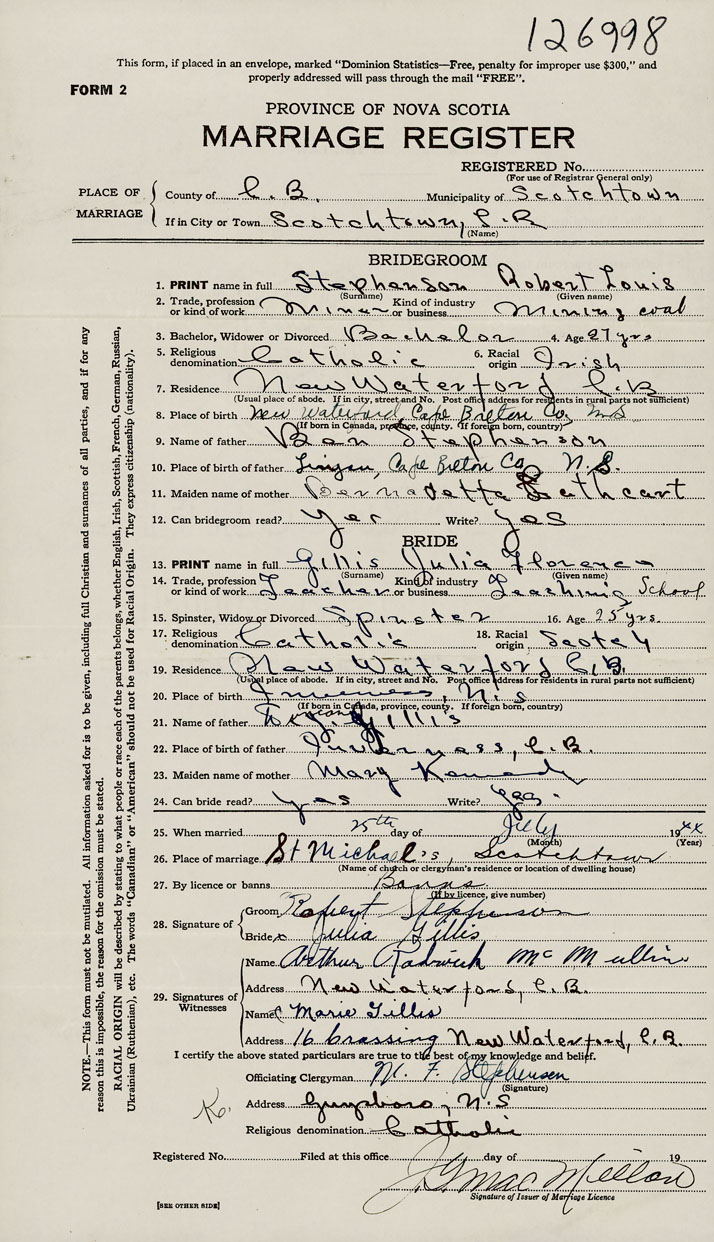 126998
This form, if placed in an envelope, marked "Dominion Statistics—Free, penalty for improper use $300," and
properly addressed will pass through the mail "FREE".
FORM 2
PROVINCE OF NOVA SCOTIA
MARRIAGE REGISTER
REGISTERED No.
(For use of Registrar General only)
PLACE OF MARRIAGE
County of C.B. Municipality of Scotchtown
If in City or Town Scotchtown, C.B.
(Name)
BRIDEGROOM
1. PRINT name in full Stephenson Robert Louis
(Surname) (Given name)
2. Trade, profession or kind of work Miner Kind of industry or business Mining coal
3. Bachelor, Widower or Divorced Bachelor 4. Age 27 yrs
5. Religious denomination Catholic 6. Racial origin Irish
7. Residence New Waterford C.B.
(Usual place of abode. If in city, street and No. Post office address for residents in rural parts not sufficient)
8. Place of birth New Waterford, Cape Breton Co., N.S.
(If born in Canada, province, county. If foreign born, country)
9. Name of father Ben Stephenson
10. Place of birth of father Lingan, Cape Breton Co, N.S.
11. Maiden name of mother Bernadette Cathcart
12. Can bridegroom read? Yes Write? Yes
BRIDE
13. PRINT name in full Gillis Julia Florence
(Surname) (Given name)
14. Trade, profession or kind of work Teacher Kind of industry or business Teaching School
15. Spinster, Widow or Divorced Spinster 16. Age 25 yrs.
17. Religious denomination Catholic 18. Racial origin Scotch
19. Residence New Waterford C.B.
(Usual place of abode. If in city, street and No. Post office address for residents in rural parts not sufficient)
20. Place of birth Inverness, N.S
(If born in Canada, province, county. If foreign born, country)
21. Name of father Gillis
22. Place of birth of father Inverness, C.B.
23. Maiden name of mother Mary Kennedy
24. Can bride read? Yes Write? Yes.
25. When married 25th day of July 19 44
(Month) (Year)
26. Place of marriage St Michael's, Scotchtown
(Name of church or clergyman's residence or location of dwelling house)
27. By licence or banns Banns
(If by licence, give number)
28. Signature of
Groom Robert Stephenson
Bride x Julia Gillis
29. Signatures of Witnesses
Name Arthur Radwick McMullin
Address New Waterford, C.B.
Name Marie Gillis
Address 16 Crossing New Waterford, C.B.
I certify the above stated particulars are true to the best of my knowledge and belief.
Officiating Clergyman M. F. Stephenson
(Signature)
Address Guysboro, N.S
Religious denomination Catholic
Registered No. Filed at this office day of 19
J G MacMillan
Signature of Issuer of Marriage Licence
[SEE OTHER SIDE]
NOTE.—This form must not be mutilated. All information asked for is to be given, including full Christian and surnames of all parties, and if for any
reason this is impossible, the reason for the omission must be stated.
RACIAL ORIGIN will be described by stating to what people or race each of the parents belongs, whether English, Irish, Scottish, French, German, Russian,
Ukrainian (Ruthenian), etc. The words "Canadian" or "American" should not be used for Racial Origin. They express citizenship (nationality).